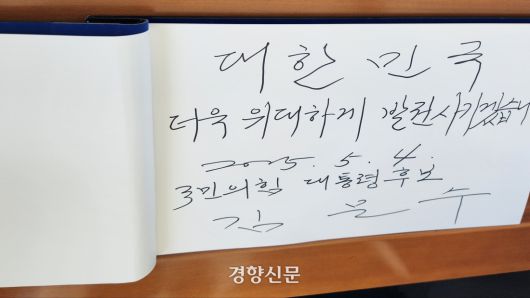 대한민국
더욱 위대하게 발전시키겠습니
2025. 5. 4.
국민의힘 대통령 후보
김문수
경향신문